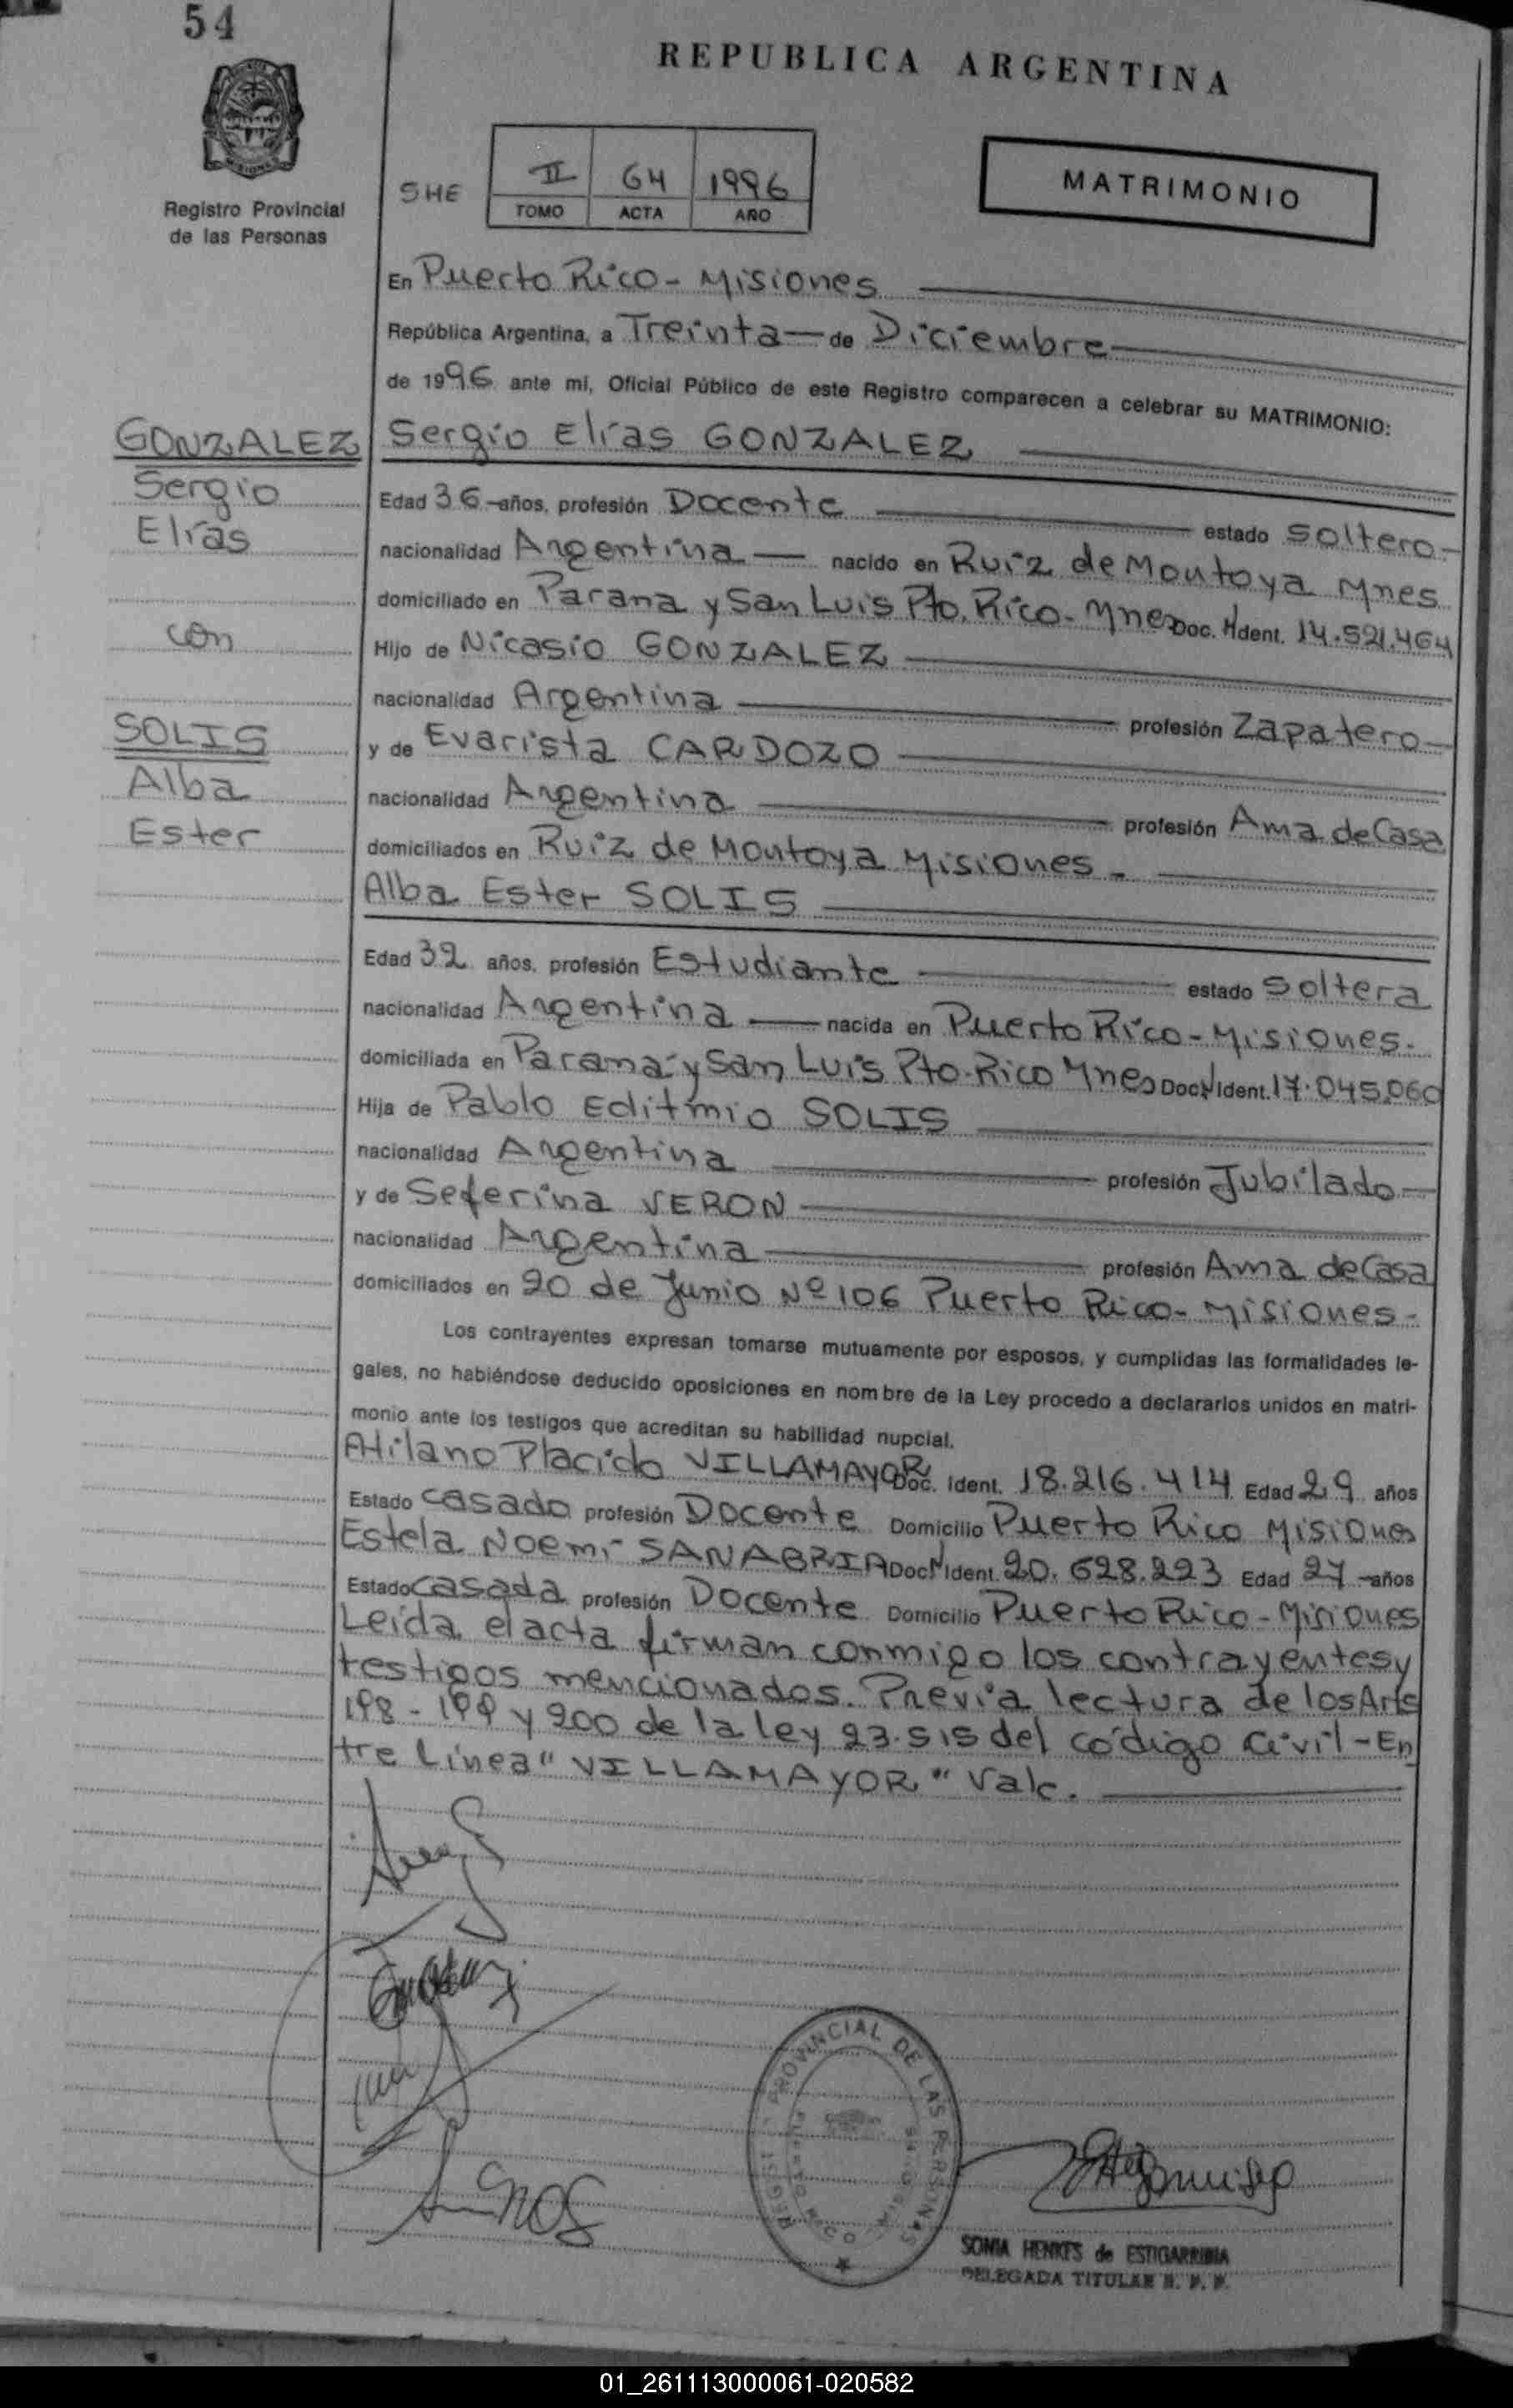 54
REPUBLICA ARGENTINA
Registro Provincial
de las Personas
SHE
II 64 1996
TOMO ACTA AÑO
MATRIMONIO
En Puerto Rico - Misiones
República Argentina, a Treinta de Diciembre
de 1996 ante mí, Oficial Público de este Registro comparecen a celebrar su MATRIMONIO:
GONZALEZ
Sergio
Elías
con
SOLIS
Alba
Ester
Sergio Elías GONZALEZ
Edad 36 años, profesión Docente estado soltero
nacionalidad Argentina nacido en Ruiz de Montoya Mnes
domiciliado en Parana y San Luis Pto. Rico - Mnes Doc. N Ident. 14.521.464
Hijo de Nicasio GONZALEZ
nacionalidad Argentina profesión Zapatero
y de Evarista CARDOZO
nacionalidad Argentina profesión Ama de Casa
domiciliados en Ruiz de Montoya Misiones -
Alba Ester SOLIS
Edad 32 años, profesión Estudiante estado soltera
nacionalidad Argentina nacida en Puerto Rico - Misiones.
domiciliada en Paraná y San Luis Pto. Rico Mnes Doc. N Ident. 17.045.060
Hija de Pablo Editmio SOLIS
nacionalidad Argentina profesión Jubilado
y de Seferina VERON
nacionalidad Argentina profesión Ama de Casa
domiciliados en 20 de Junio Nº 106 Puerto Rico - Misiones -
Los contrayentes expresan tomarse mutuamente por esposos, y cumplidas las formalidades le-
gales, no habiéndose deducido oposiciones en nombre de la Ley procedo a declararlos unidos en matri-
monio ante los testigos que acreditan su habilidad nupcial.
Atilano Placido VILLAMAYOR Doc. Ident. 18.216.414 Edad 29 años
Estado casado profesión Docente Domicilio Puerto Rico Misiones
Estela Noemí SANABRIA Doc. N Ident. 20.628.223 Edad 27 años
Estado casada profesión Docente Domicilio Puerto Rico - Misiones
Leída el acta firman conmigo los contrayentes y
testigos mencionados. Previa lectura de los Arts
198 - 199 y 200 de la ley 23.515 del código Civil - En
tre Línea " VILLAMAYOR " Vale.
PROVINCIAL DE LAS PERSONAS
SONIA HENKES de ESTIGARRIBIA
DELEGADA TITULAR R. P. P.
01_261113000061-020582